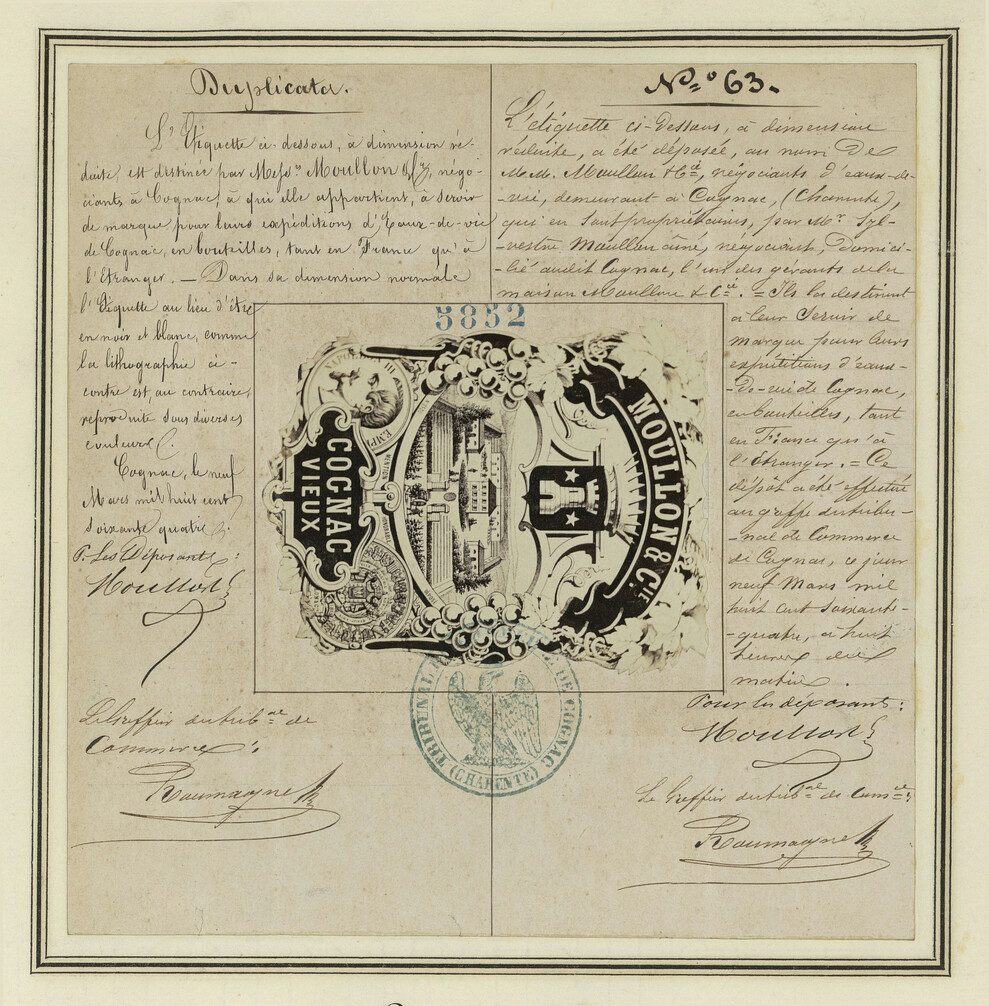 Duplicata.
L'Etiquette ci-dessous, à dimension ré-
duite, est destinée par Mess.rs Moullon & Cie, négo-
ciants à Cognac, à qui elle appartient, à servir
de marque pour leurs expéditions d'Eaux-de-vie
de Cognac, en bouteilles, tant en France qu'à
l'Etranger. — Dans sa dimension normale
l'Etiquette au lieu d'être
en noir et blanc, comme
la lithographie ci-
contre est, au contraire,
reproduite sous diverses
couleurs.
Cognac, le neuf
Mars mil huit cent
soixante quatre.
P. Les Déposants:
Moullon
Le Greffier du trib.al de
Commerce:
Roumagne
N° 63.
L'étiquette ci-Dessous, à dimension
réduite, a été déposée, au nom De
M.M. Moullon & Cie, négociants d'eaux-de-
-vie, demeurant à Cognac, (Charente),
qui en sont propriétaires, par Mr. Syl-
-vestre Moullon aîné, négociant, Domici-
-lié audit Cognac, l'un des gérants de la
maison Moullon & Cie. = Ils la destinent
à leur Servir de
marque pour leurs
expéditions d'eaux-
-De-vie de Cognac,
en bouteilles, tant
en France qu'à
l'étranger. = Ce
dépôt a été effectué
au greffe du tribu-
-nal de Commerce
de Cognac, ce jour
neuf Mars mil
huit cent soixante-
-quatre, à huit
heures du
matin.
Pour les déposants:
Moullon
Le Greffier du trib.al de Comce:
Roumagne
5852
MOULLON & CIE
COGNAC
VIEUX
NAPOLEON III
EMP
MENTION
TRIBUNAL DE COGNAC
(CHARENTE)